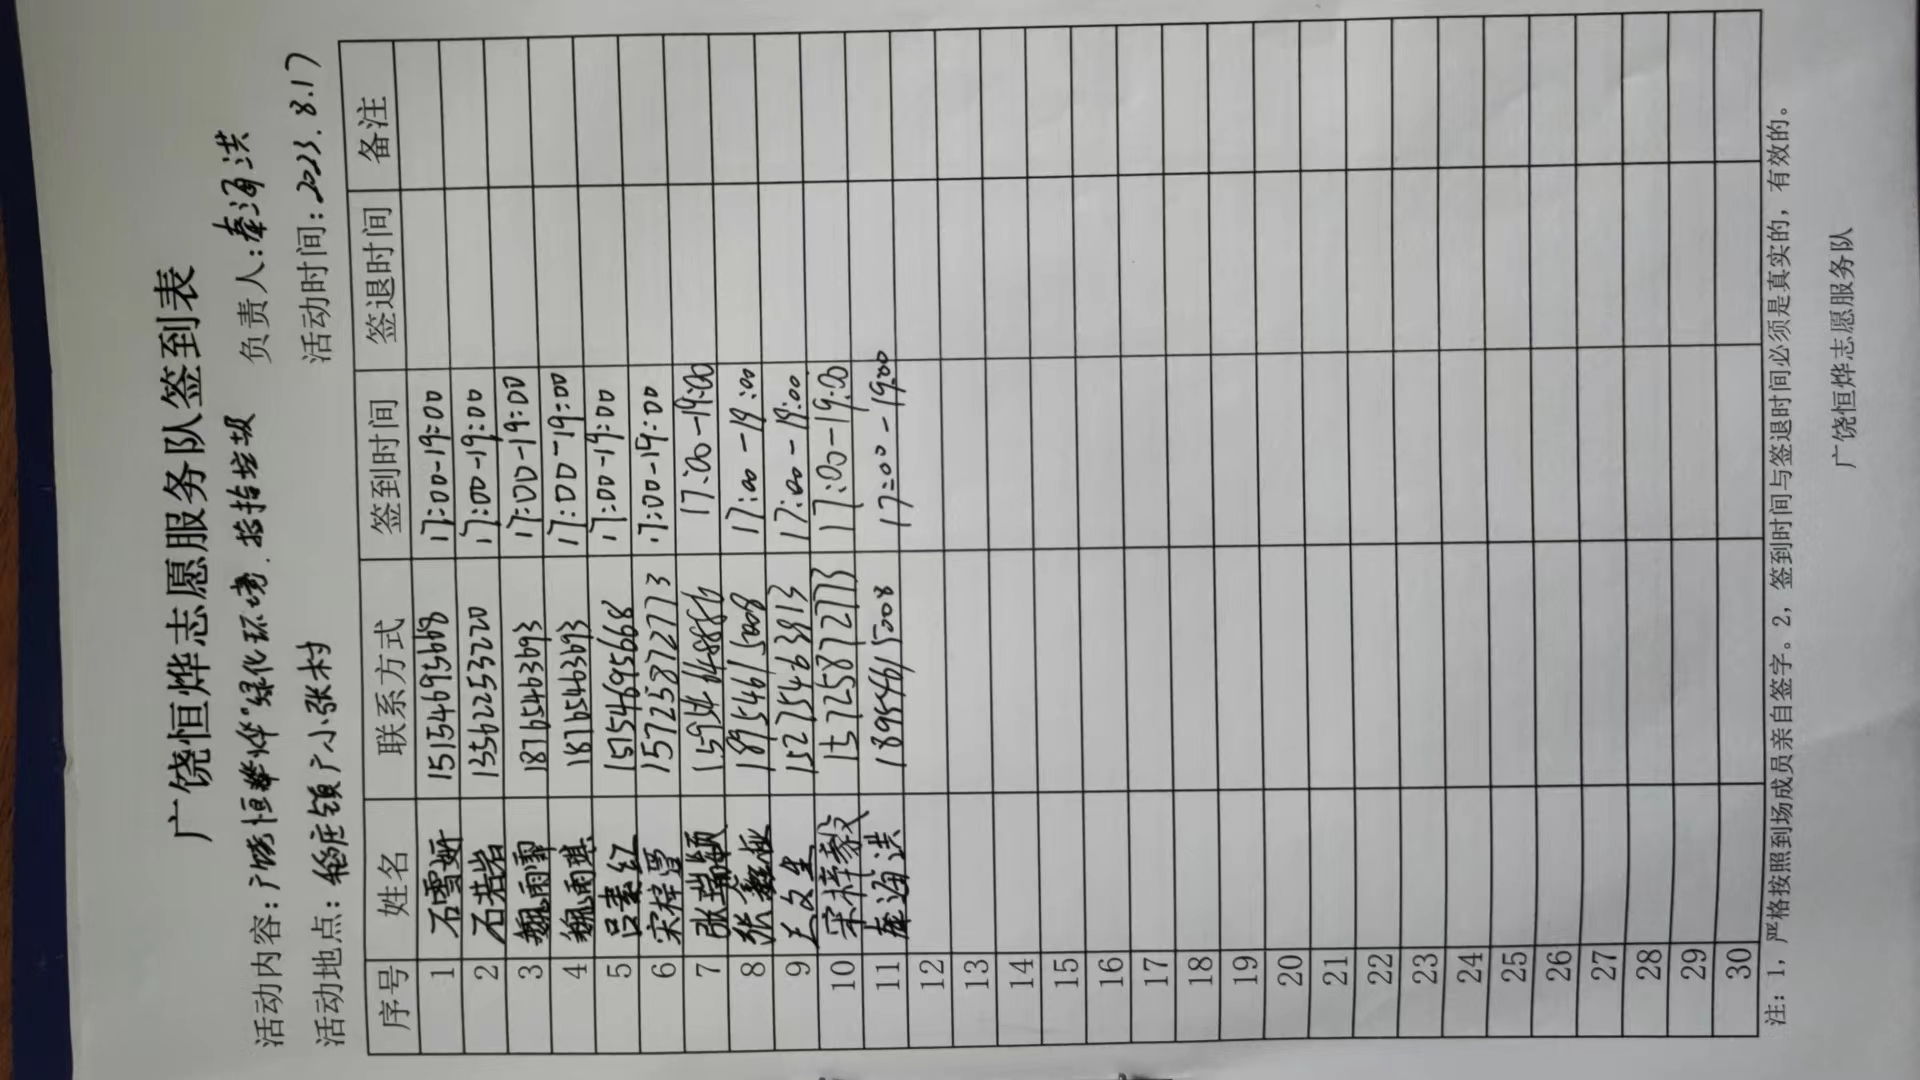 广饶恒烨志愿服务队签到表
活动内容：广饶恒烨"绿化环境．捡拾垃圾 负责人：秦海洪
活动地点：稻庄镇广小张村 活动时间：2023.8.17
序号 姓名 联系方式 签到时间 签退时间 备注
1 石雪妍 15154695668 17:00-19:00
2 石若岩 13562253220 17:00-19:00
3 魏雨霏 18765463693 17:00-19:00
4 魏雨琪 18765463693 17:00-19:00
5 吕素红 15154695668 17:00-19:00
6 宋梓 15725872773 17:00-19:00
7 张瑞颖 17:00-19:00
8 张 18954615008 17:00-19:00
9 王文生 15275463913 17:00-19:00
10 宋梓蒙 15725872773 17:00-19:00
11 秦海洪 18954615008 17:00-19:00
12
13
14
15
16
17
18
19
20
21
22
23
24
25
26
27
28
29
30
注：1，严格按照到场成员亲自签字。2，签到时间与签退时间必须是真实的，有效的。
广饶恒烨志愿服务队